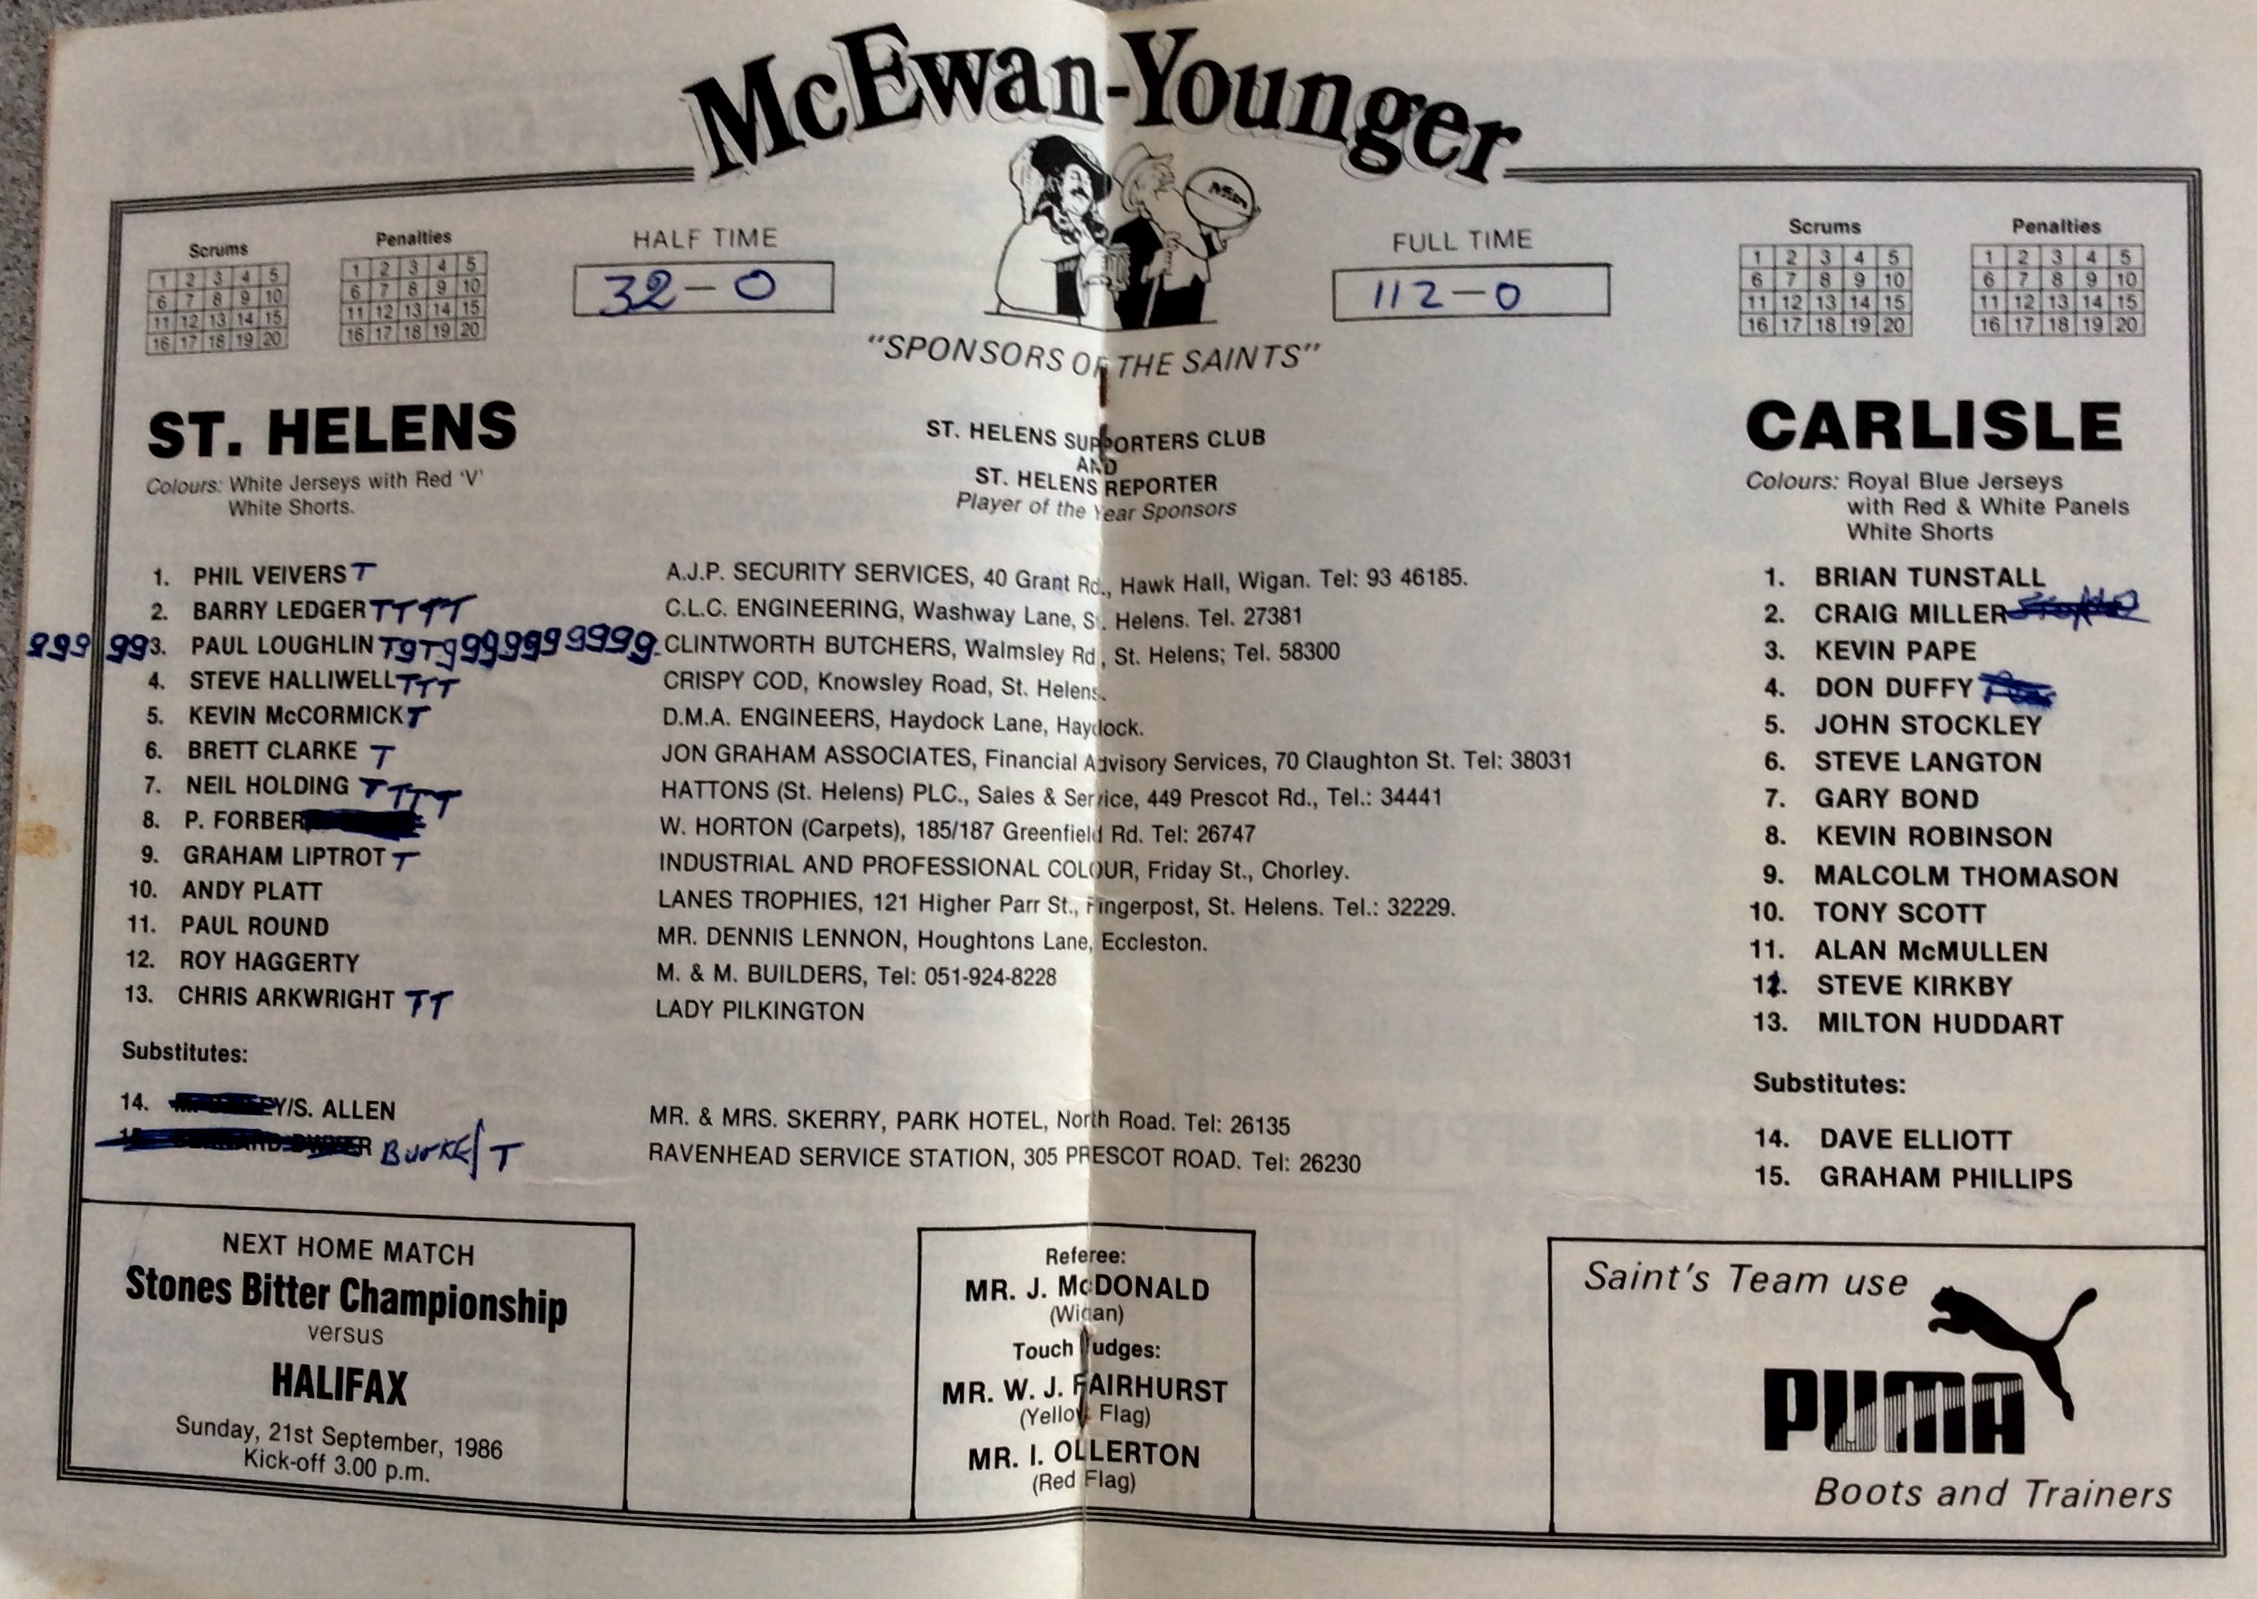 McEwan-Younger
"SPONSORS OF THE SAINTS"
Scrums
1 2 3 4 5
6 7 8 9 10
11 12 13 14 15
16 17 18 19 20
Penalties
1 2 3 4 5
6 7 8 9 10
11 12 13 14 15
16 17 18 19 20
HALF TIME
32-0
FULL TIME
112-0
Scrums
1 2 3 4 5
6 7 8 9 10
11 12 13 14 15
16 17 18 19 20
Penalties
1 2 3 4 5
6 7 8 9 10
11 12 13 14 15
16 17 18 19 20
ST. HELENS
Colours: White Jerseys with Red 'V'
White Shorts.
ST. HELENS SUPPORTERS CLUB
AND
ST. HELENS REPORTER
Player of the Year Sponsors
CARLISLE
Colours: Royal Blue Jerseys
with Red & White Panels
White Shorts
1. PHIL VEIVERS T
2. BARRY LEDGER TTTT
ggg gg 3. PAUL LOUGHLIN TgTggggggggggg
4. STEVE HALLIWELL TTT
5. KEVIN McCORMICK T
6. BRETT CLARKE T
7. NEIL HOLDING TTTT
8. P. FORBER
9. GRAHAM LIPTROT T
10. ANDY PLATT
11. PAUL ROUND
12. ROY HAGGERTY
13. CHRIS ARKWRIGHT TT
Substitutes:
14. Y/S. ALLEN
BURKE/ T
A.J.P. SECURITY SERVICES, 40 Grant Rd., Hawk Hall, Wigan. Tel: 93 46185.
C.L.C. ENGINEERING, Washway Lane, St. Helens. Tel. 27381
CLINTWORTH BUTCHERS, Walmsley Rd, St. Helens; Tel. 58300
CRISPY COD, Knowsley Road, St. Helens.
D.M.A. ENGINEERS, Haydock Lane, Haydock.
JON GRAHAM ASSOCIATES, Financial Advisory Services, 70 Claughton St. Tel: 38031
HATTONS (St. Helens) PLC., Sales & Service, 449 Prescot Rd., Tel.: 34441
W. HORTON (Carpets), 185/187 Greenfield Rd. Tel: 26747
INDUSTRIAL AND PROFESSIONAL COLOUR, Friday St., Chorley.
LANES TROPHIES, 121 Higher Parr St., Fingerpost, St. Helens. Tel.: 32229.
MR. DENNIS LENNON, Houghtons Lane, Eccleston.
M. & M. BUILDERS, Tel: 051-924-8228
LADY PILKINGTON
MR. & MRS. SKERRY, PARK HOTEL, North Road. Tel: 26135
RAVENHEAD SERVICE STATION, 305 PRESCOT ROAD. Tel: 26230
1. BRIAN TUNSTALL
2. CRAIG MILLER
3. KEVIN PAPE
4. DON DUFFY
5. JOHN STOCKLEY
6. STEVE LANGTON
7. GARY BOND
8. KEVIN ROBINSON
9. MALCOLM THOMASON
10. TONY SCOTT
11. ALAN McMULLEN
12. STEVE KIRKBY
13. MILTON HUDDART
Substitutes:
14. DAVE ELLIOTT
15. GRAHAM PHILLIPS
NEXT HOME MATCH
Stones Bitter Championship
versus
HALIFAX
Sunday, 21st September, 1986
Kick-off 3.00 p.m.
Referee:
MR. J. McDONALD
(Wigan)
Touch Judges:
MR. W. J. FAIRHURST
(Yellow Flag)
MR. I. OLLERTON
(Red Flag)
Saint's Team use
PUMA
Boots and Trainers